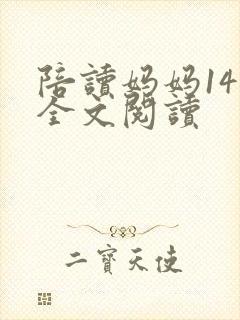 陪讀妈妈14
全文閱讀
二寶天使